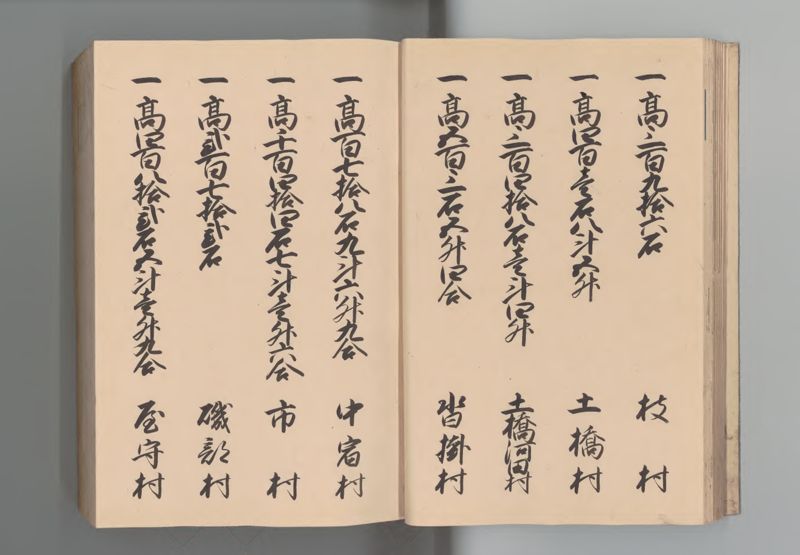 一高三百九拾六石 枝村
一高四百壱石八斗五升 土橋村
一高三百四拾八石壱斗四升 土橋河田村
一高五百三石五升四合 沓掛村
一高百七拾八石九斗六升九合 中宿村
一高千百四拾四石七斗壱升六合 市村
一高弐百七拾弐石 磯部村
一高四百八拾弐石五斗壱升九合 屋守村